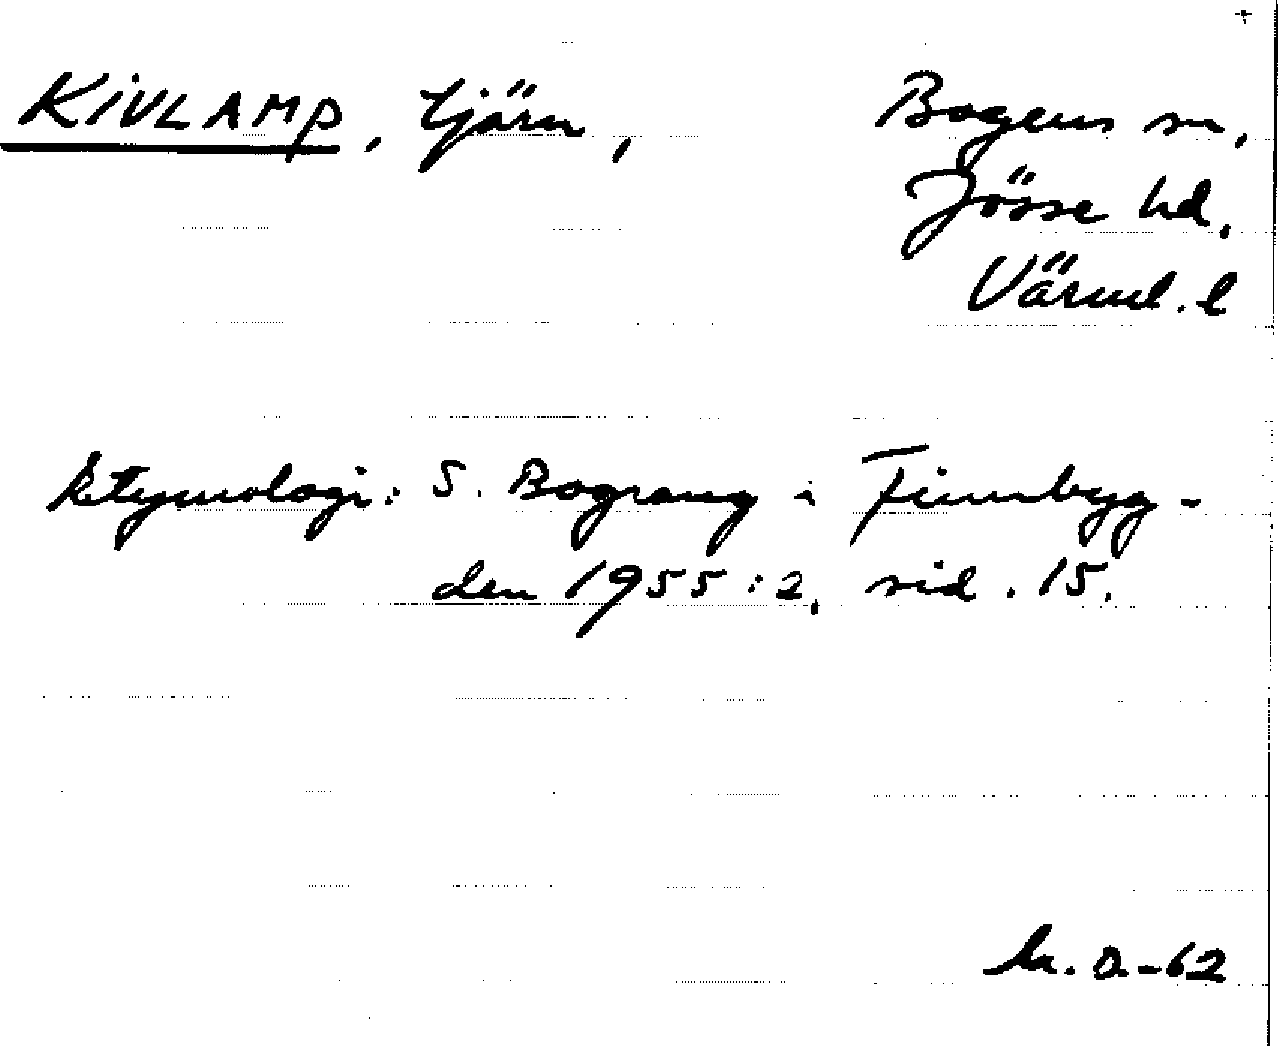 KIVLAMP, tjärn, Bogens sn,
Jösse hd,
Värml. l
Etymologi: S. Bograng i Finnbyg-
den 1955:2, sid. 15.
-62